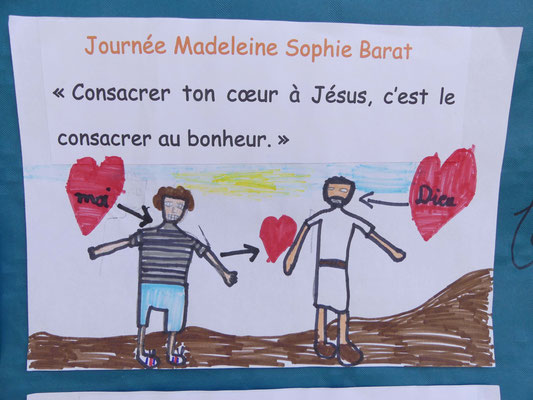 Journée Madeleine Sophie Barat
« Consacrer ton cœur à Jésus, c'est le
consacrer au bonheur. »
moi
Dieu